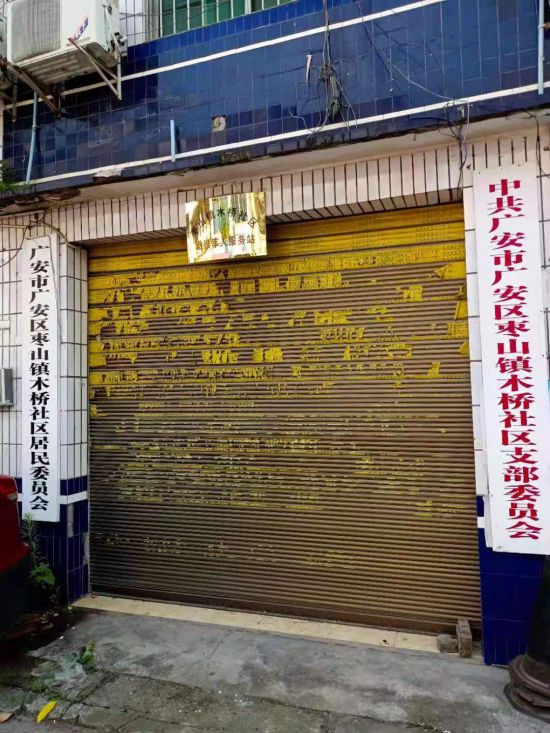 广安市广安区枣山镇木桥社区居民委员会
枣山镇木桥社区
退役军人服务站
中共广安市广安区枣山镇木桥社区支部委员会